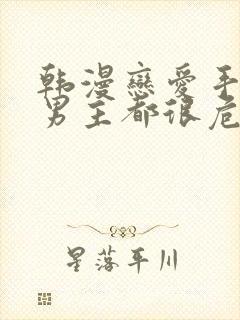 韩漫戀愛手
男主都很危
星落平川